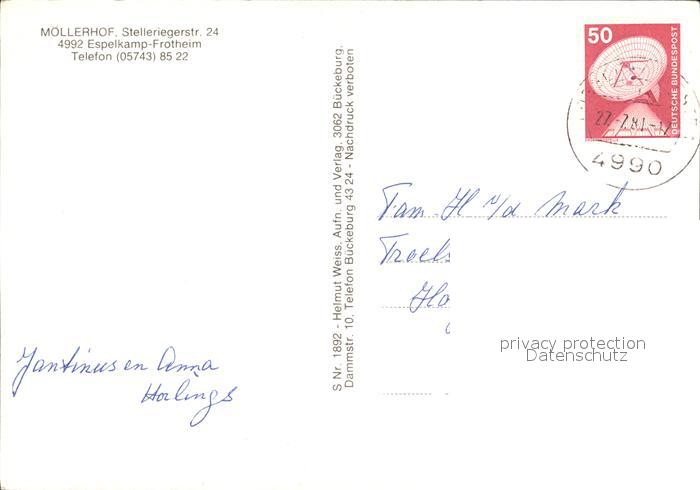 MÖLLERHOF, Stelleriegerstr. 24
4992 Espelkamp-Frotheim
Telefon (05743) 85 22
S Nr. 1892 - Helmut Weiss, Aufn. und Verlag, 3062 Bückeburg,
Dammstr. 10, Telefon Bückeburg 43 24 - Nachdruck verboten
50
DEUTSCHE BUNDESPOST
4990
Fam. H v/d Mark
privacy protection
Datenschutz
Jantinus en Anna
Horlings